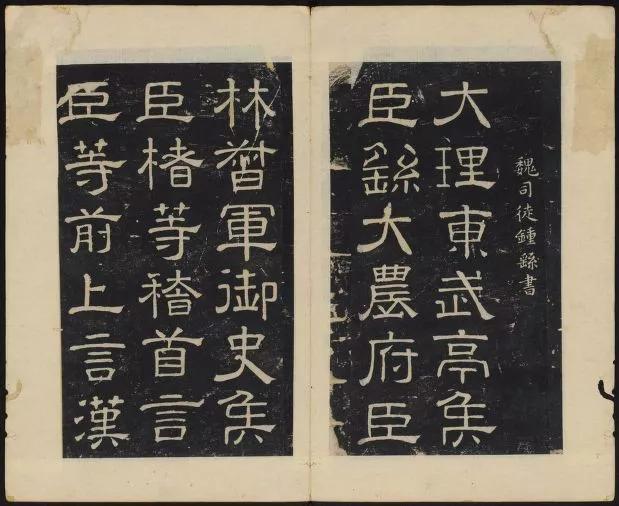 魏司徒鍾繇書
大理東武亭侯
臣繇大農府臣
林督軍御史侯
臣楮等稽首言
臣等前上言漢